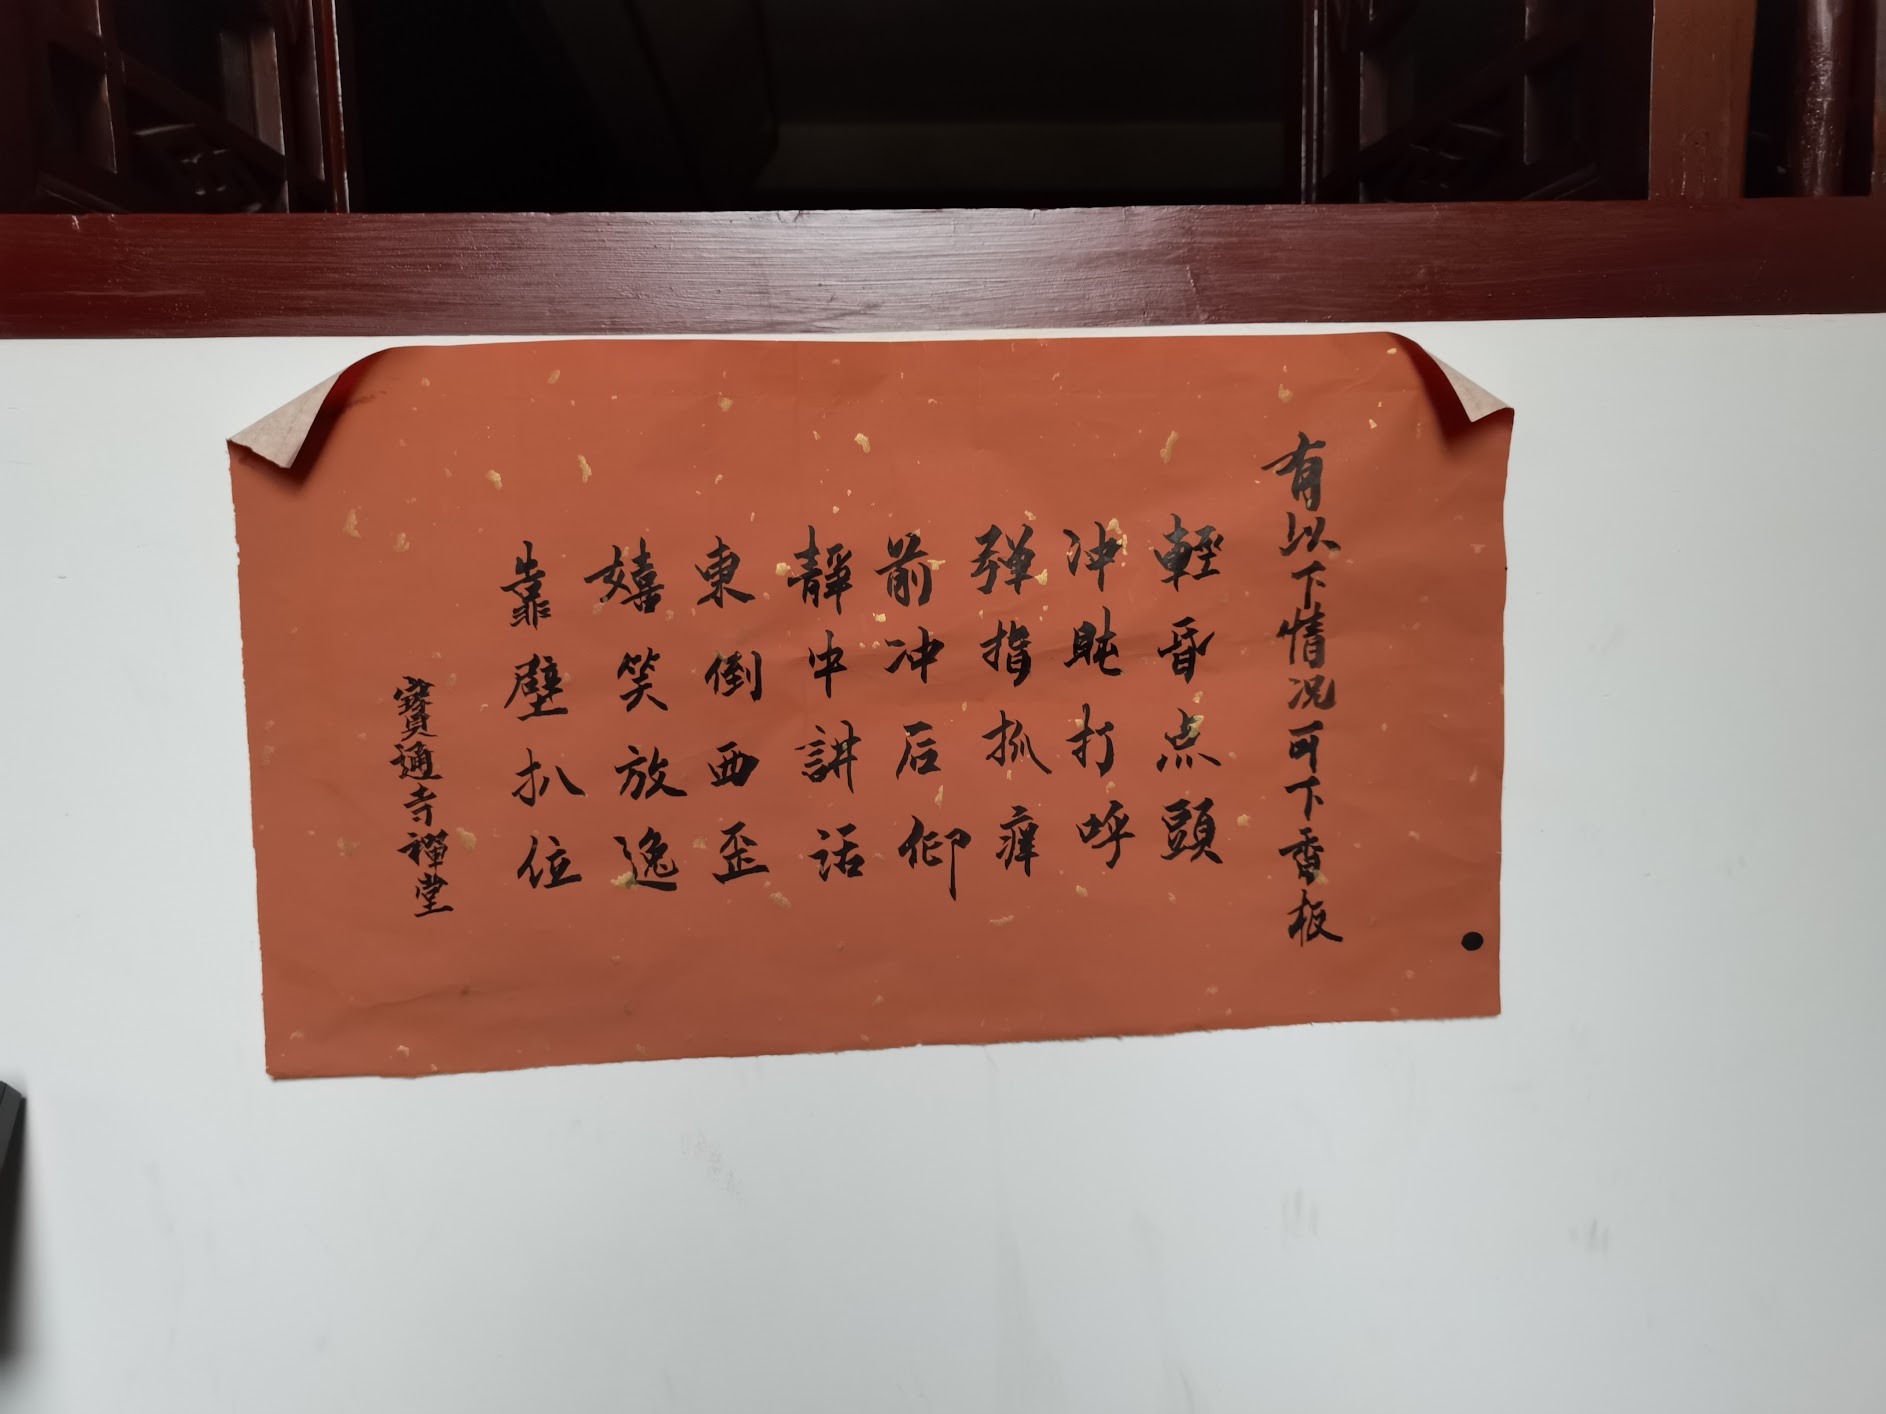 有以下情况可下香板
輕昏点頭
冲盹打呼
弹指抓痒
前冲后仰
靜中講话
東倒西歪
嬉笑放逸
靠壁扒位
寶通寺禪堂